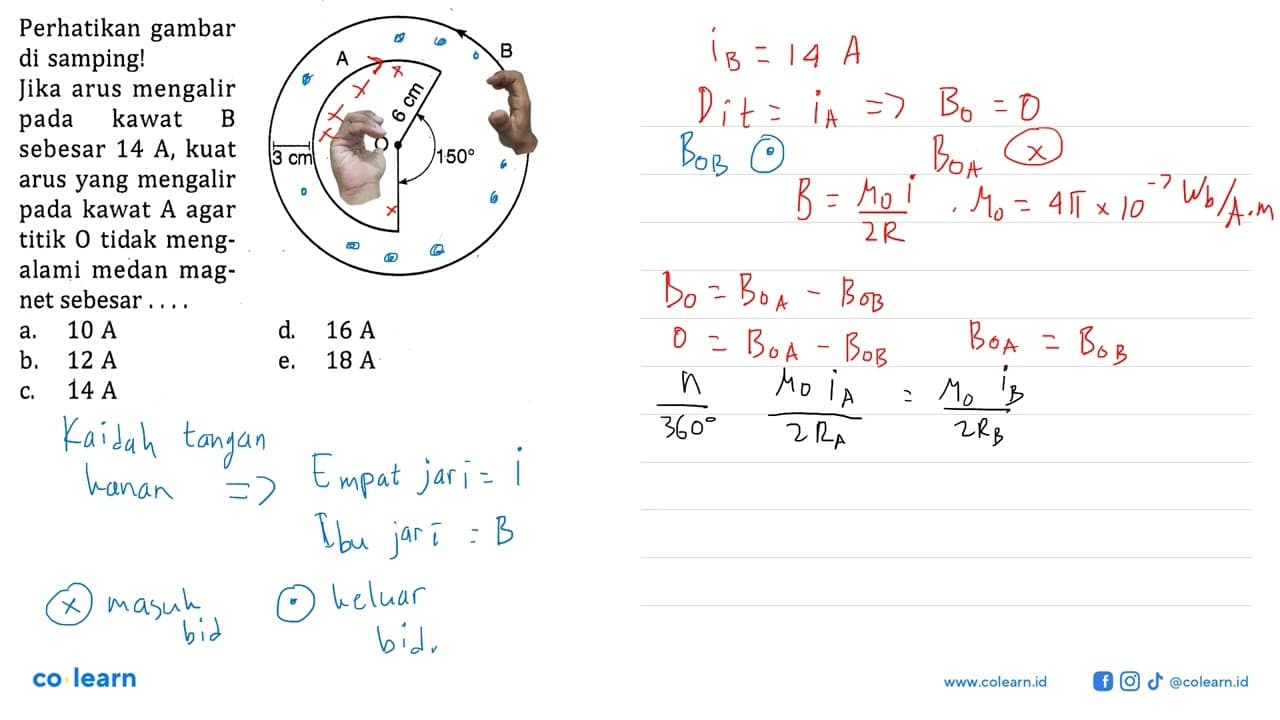 Perhatikan gambar
di samping!
Jika arus mengalir
pada kawat B
sebesar 14 A, kuat
arus yang mengalir
pada kawat A agar
titik O tidak meng-
alami medan mag-
net sebesar . . . .
a. 10 A
b. 12 A
c. 14 A
d. 16 A
e. 18 A
A
B
6 cm
O
3 cm
150°
Kaidah tangan
kanan => Empat jari = i
Ibu jari = B
ⓧ masuk
bid
⊙ keluar
bid.
i_B = 14 A
Dit = i_A => B_O = 0
B_OB ⊙ B_OA ⓧ
B = μ_0 i / 2R , μ_0 = 4π × 10^-7 Wb/A.m
B_O = B_OA - B_OB
0 = B_OA - B_OB B_OA = B_OB
n/360° μ_0 i_A / 2R_A = μ_0 i_B / 2R_B
co·learn
www.colearn.id
@colearn.id